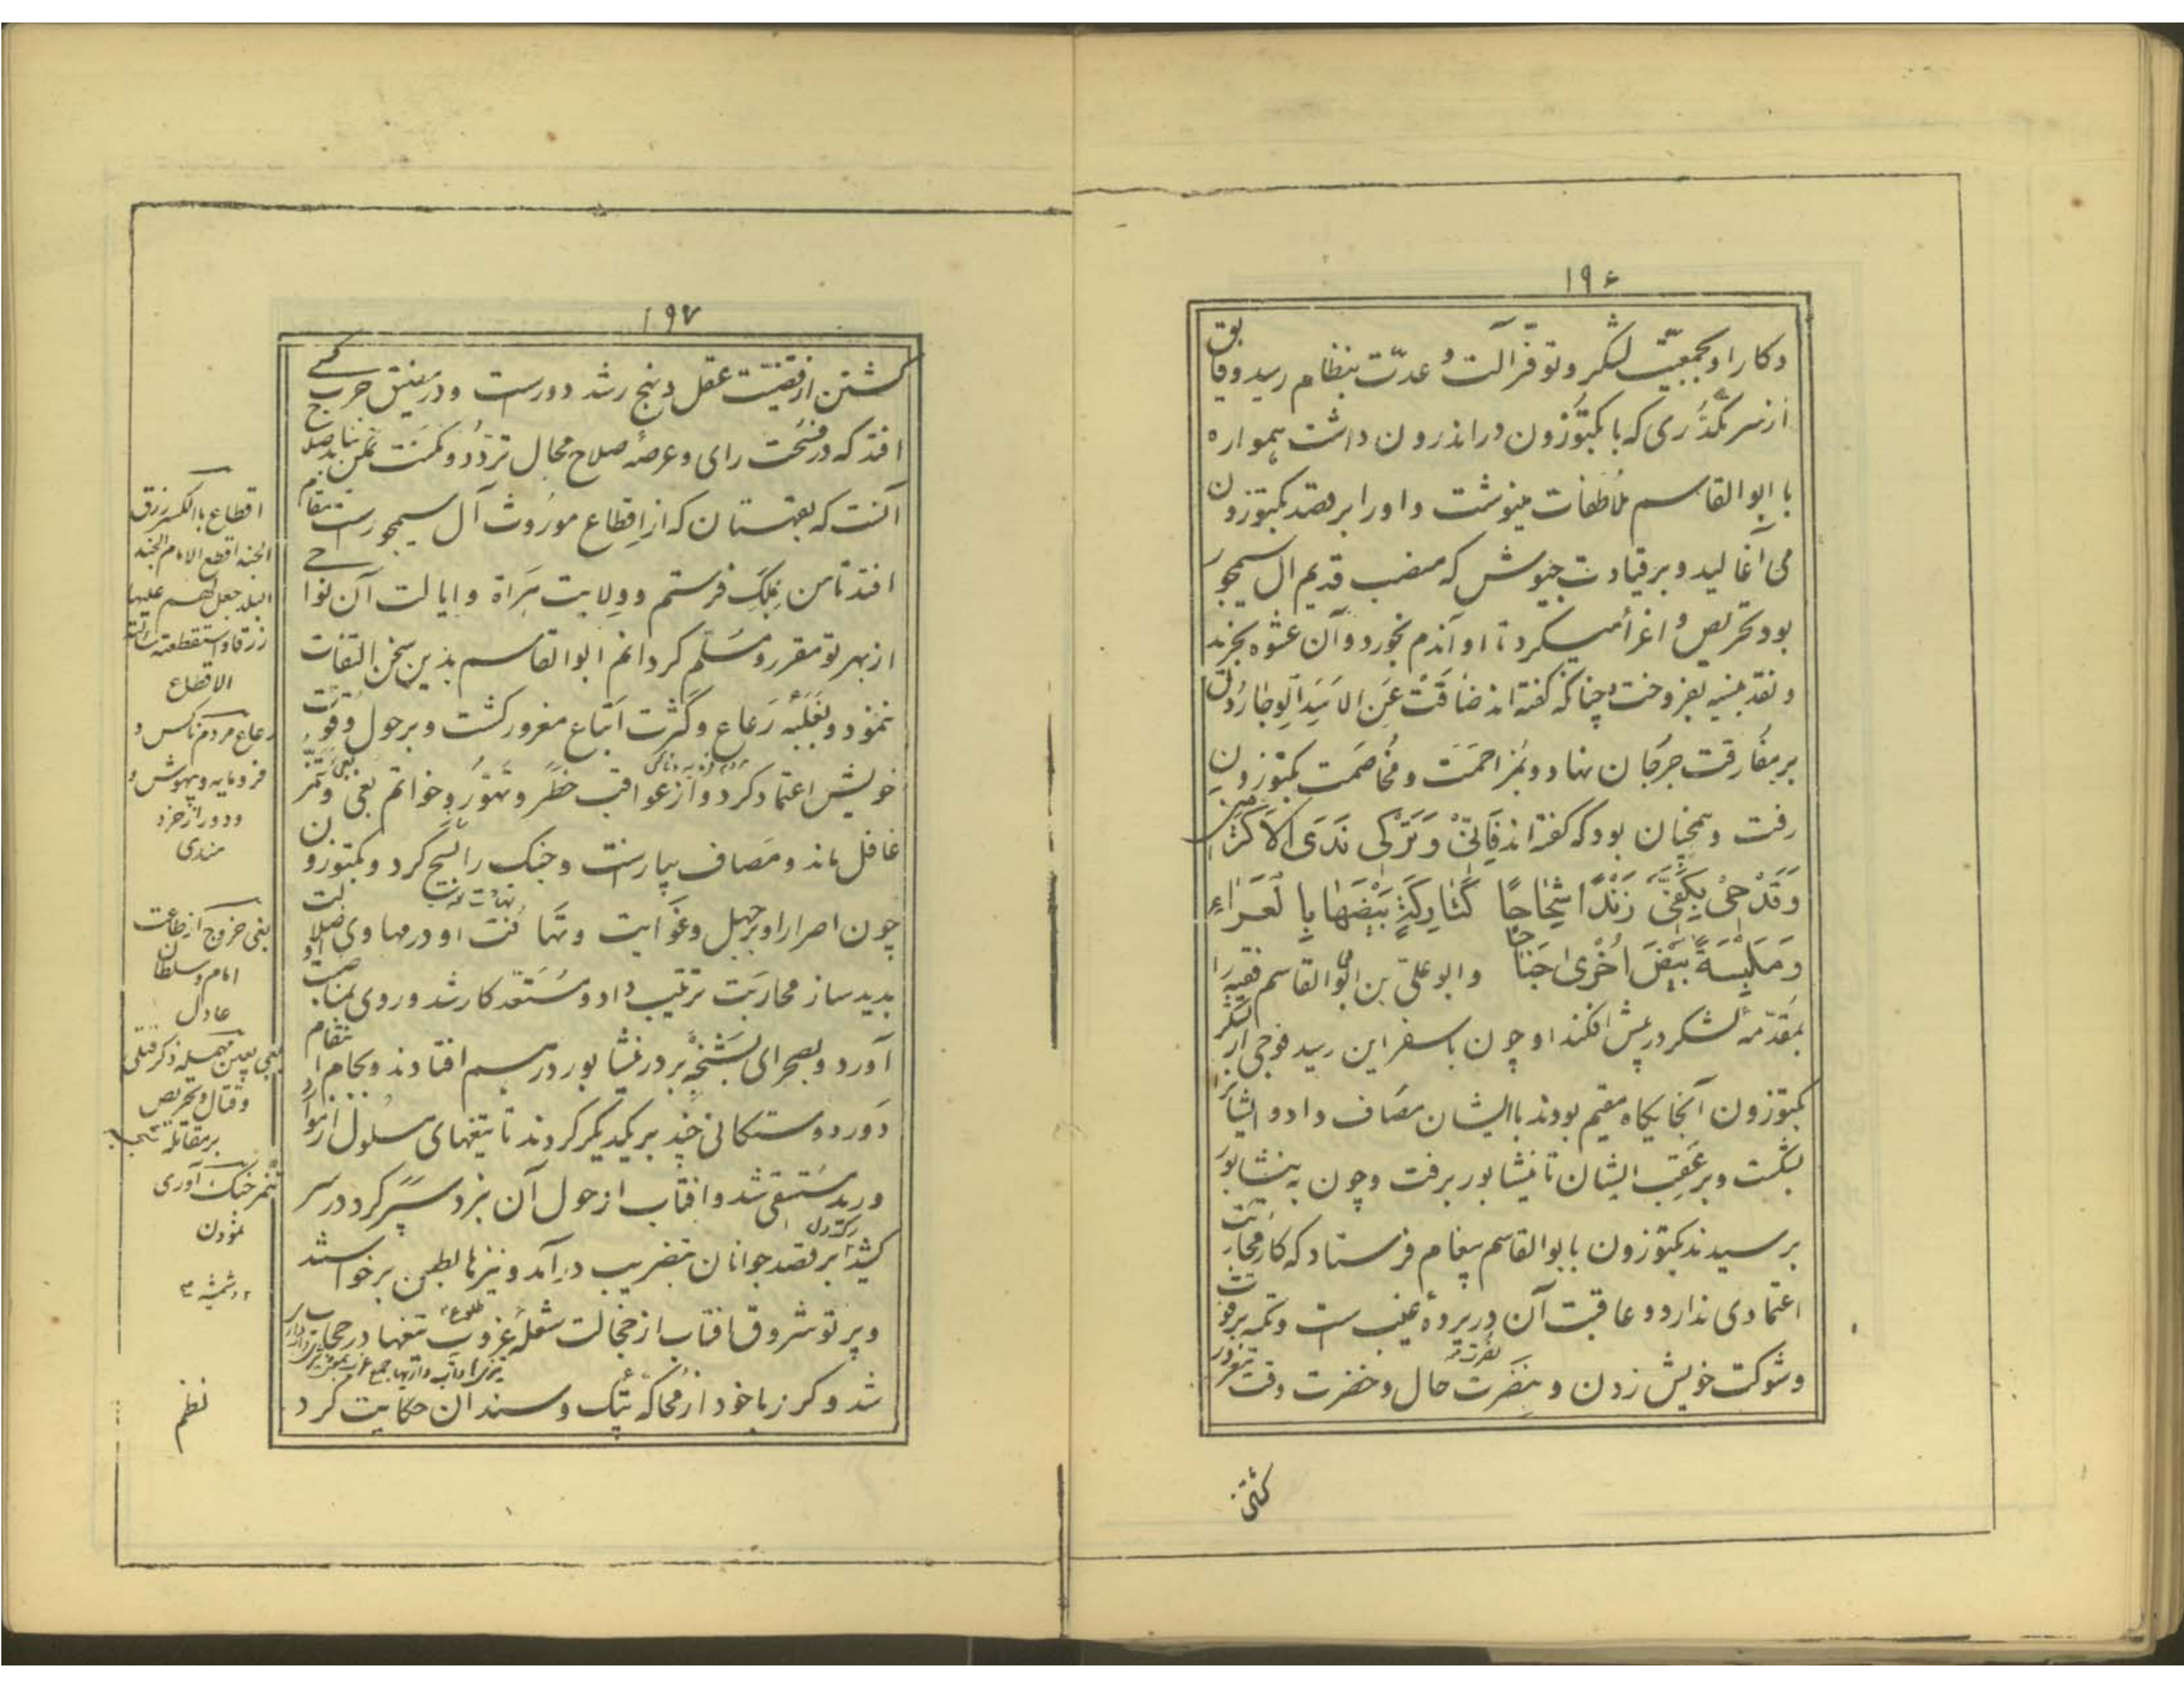 ۱۹۶
و کار او بجمعیّت لشکر و توفر آلت و عدّت بنظام رسید و فایق
از سر تکدّری که با بکتوزون در اندرون داشت همواره
با ابو القاسم ملاطفات مینوشت و او را بر قصد بکتوزون
می آغالید و بر قیادت جیوش که منصب قدیم ال سیمجور
بود تحریص و اغرا میکرد تا او آندم بخورد و آن عشوه بخرید
و نقد بنسیه بفروخت چنانکه کفته اند ضاقت عن الاسید الوجار و دل
بر مفارقت جرجان نهاد و بمزاحمت و مخاصمت بکتوزون
رفت و همچنان بود که کفته اند فَاِنّی وَ تَرْکی نَدَی الاَکْرَمینَ
وَقَدْحی بِکَفَّیَّ زَنْدًا شِحَاحًا کَتَارِکَةٍ بَیْضَهَا بِالْعَرَاءِ
وَ مُلْبِسَةً بَیْضَ اُخْرٰی جَنَاحًا و ابو علی بن ابی القاسم فقیه را
بمقدّمهٔ لشکر در پیش افکند او چون باسفراین رسید فوجی از لشکر
بکتوزون آنجایکاه مقیم بودند با ایشان مصاف داد و ایشانرا
بشکست و بر عقب ایشان تا نیشابور برفت و چون به نیشابور
برسیدند بکتوزون بابو القاسم پیغام فرستاد که کار محاربت
اعتمادی ندارد و عاقبت آن در پردهٔ غیب است و تکیه بر قوت
و شوکت خویش زدن و بنضرت حال و خضرت وقت مغرور
کشتن
۱۹۷
کشتن از قضیّت عقل و نهج رشد دورست و در مضیق حرب کسی
افتد که در فسحت رای و عرصهٔ صلاح مجال تردّد و مکنت تمکن نیابد صلاح
آنست که بقهستان که از اقطاع موروث آل سیمجورست مقام
افتد تا من بملک فرستم و ولایت هراة و ایالت آن نواحی
از بهر تو مقرر و مسلّم کردانم ابو القاسم بدین سخن التفات
ننمود و بغلبهٔ رعاع و کثرت اتباع مغرور کشت و بر حول و قوّت
خویش اعتماد کرد و از عواقب خطر و تهوّر و خواتم بغی و تنمّر
غافل ماند و مصاف بیاراست و جنک را بسیج کرد و بکتوزون
چون اصرار او بر جهل و غوایت و تهافت او در مهاوی ضلالت
بدید ساز محاربت ترتیب داد و مستعد کار شد و روی بمناصبت او
آورد و بصحرای بشنجه بر در نیشابور درهم افتادند و بجام انتقام
دور دوستکانی چند بر یکدیکر کردند تا تیغهای مسلول از موارد
ورید مستسقی شد و افتاب از حول آن نبرد سپر کرد در سر
کشید ابر بقصد جوانان بتضریب درآمد و نیزها بطعن برخواستند
و پرتو شروق افتاب از خجالت شعلهٔ غروب تیغها در حجاب
شد و کرزها خود از محاکهٔ پتک و سندان حکایت کرد
اقطاع باالکسر رزق
الجند اقطع الامام الجند
البلد جعل لهم علیها
رزقا و استقطعته سألته
الاقطاع
رعاع مردم ناکس و
فرومایه و بیهوش و
و دور از خرد
مندی
بغی خروج از طاعت
امام و سلطان
عادل
وقتال و تحریص
بر مقاتله
تنمر خنک آوری
نمودن
نظم